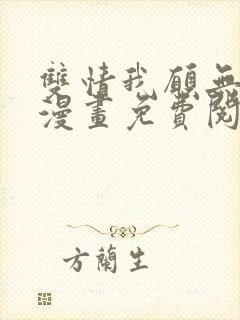 雙情我願無
漫畫免費閱
方蘭生